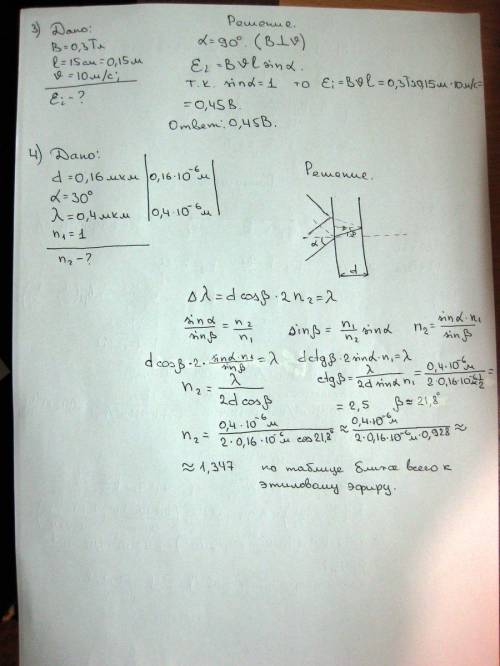 3) Дано:
B=0,3Тл
l=15см=0,15м
υ=10м/с;
εi-?
Решение.
α=90°. (B⊥υ)
εi=Bυl sinα.
т.к. sinα=1 то εi=Bυl=0,3Тл·0,15м·10м/с=
=0,45В.
Ответ: 0,45В.
4) Дано:
d=0,16мкм | 0,16·10⁻⁶м
α=30°
λ=0,4мкм | 0,4·10⁻⁶м
n₁=1
n₂-?
Решение.
α
β
d
Δλ=d cosβ·2n₂=λ
sinα/sinβ=n₂/n₁ sinβ=n₁/n₂ sinα n₂=sinα·n₁/sinβ
d cosβ·2·sinα·n₁/sinβ=λ d ctgβ·2sinα·n₁=λ
n₂=λ/2d cosβ ctgβ=λ/2d sinα n₁=0,4·10⁻⁶м/2·0,16·10⁻⁶·1/2=
=2,5 β≈21,8°
n₂=0,4·10⁻⁶м/2·0,16·10⁻⁶м cos21,8°≈0,4·10⁻⁶м/2·0,16·10⁻⁶м·0,928≈
≈1,347 по таблице ближе всего к
этиловому эфиру.